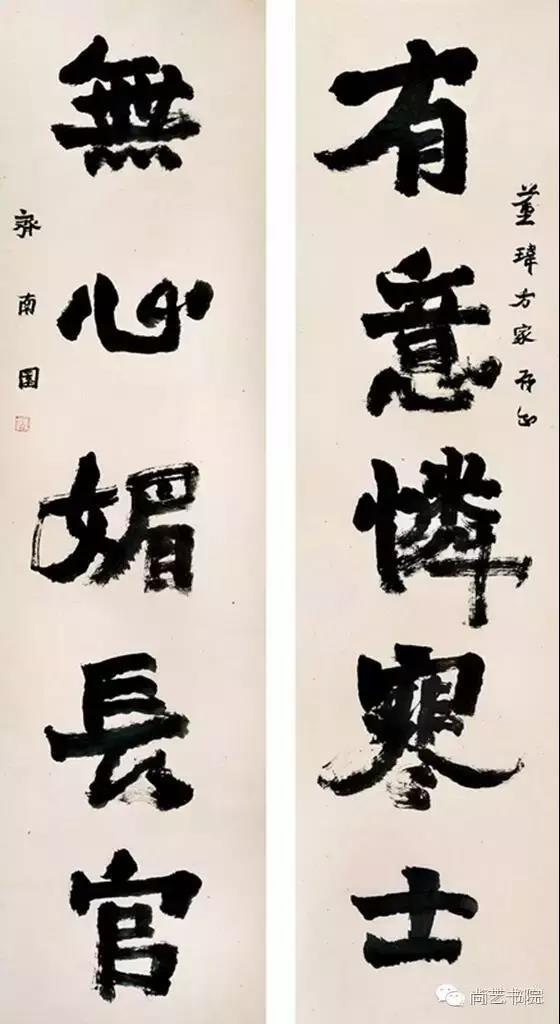 董瑋方家
有意憐寒士
無心媚長官
齊南
尚艺书院